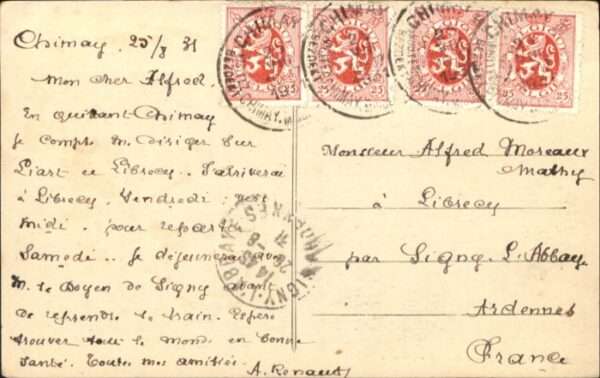 Chimay, 25/8 31
Mon cher Alfred.
En quittant Chimay
je compte me diriger sur
Liart et Librecy. J'arriverai
à Librecy. Vendredi
midi. pour repartir
Samedi.. je déjeunerai avec
M. le Doyen de Signy avant
de reprendre le train. Espère
trouver tout le monde en bonne
santé. Toutes mes amitiés.
A. Renaut
Monsieur Alfred Moreaux
Mathy
à Librecy
par Signy L'Abbaye
Ardennes
France
CHIMAY
CHIMAY
CHIMAY
CHIMAY
25
25
25
25
SIGNY-L'ABBAYE
ARDENNES